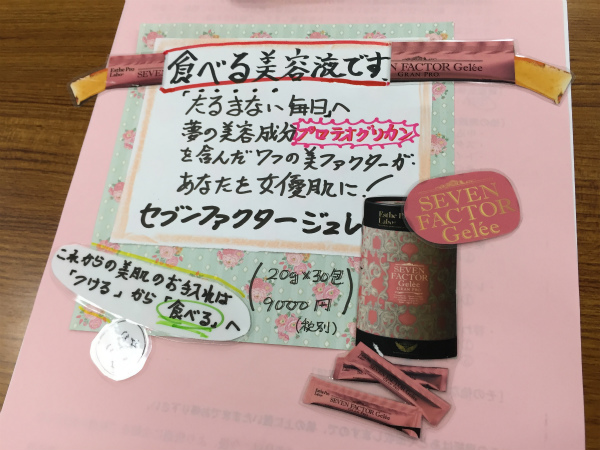 Esthe Pro Labo
SEVEN
食べる美容液です
SEVEN FACTOR Gelée
GRAN PRO
「たるまない毎日」へ
夢の美容成分プロテオグリカン
を含んだ7つの美ファクターが、
あなたを女優肌に!
セブンファクタージュレ
これからの美肌のお手入れは
「つける」から「食べる」へ
(20g×30包
9000円
(税別))
SEVEN
FACTOR
Gelée
Esthe Pro Labo
SEVEN
FACTOR
Gelée
GRAN PRO
SEVEN FACTOR Gelée